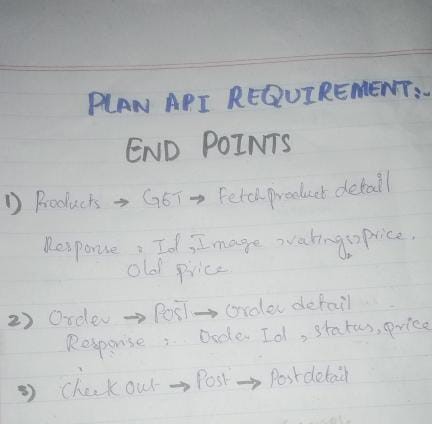 PLAN API REQUIREMENT:-
END POINTS
1) Products → GET → Fetch product detail
Response : Id, Image, ratings, price,
Old price
2) Order → POST → Order detail
Response : Order Id, status, price
3) Check out → Post → Post detail